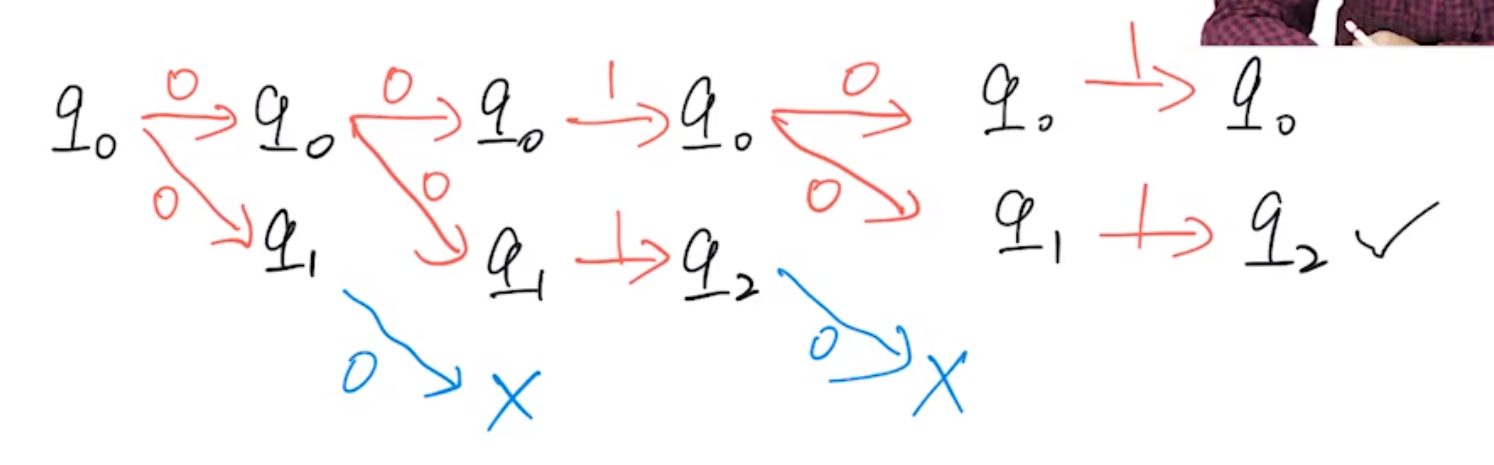 q₀ 0 q₀ 0 q₀ 1 q₀ 0 q₀ 1 q₀
0 0 0
q₁ q₁ 1 q₂ q₁ 1 q₂ ✓
0 X 0 X